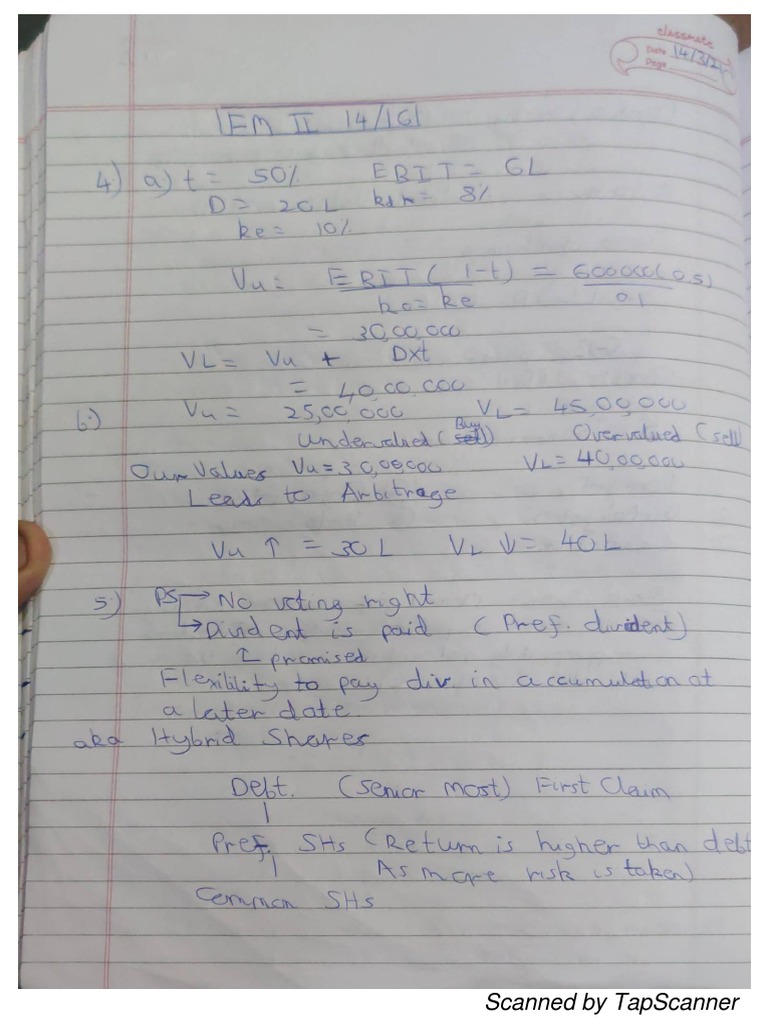 classmate
Date 14/3/2
Page
FM II 14/16
4) a) t = 50% EBIT = 6L
D = 20L kdm = 8%
ke = 10%
Vu = EBIT (1-t) / ko = ke = 600000(0.5) / 0.1
= 30,00,000
VL = Vu + Dxt
= 40,00,000
b.) Vu = 25,00,000 VL = 45,00,000
undervalued (Buy) Overvalued (sell)
Our values Vu = 30,00,000 VL = 40,00,000
Leads to Arbitrage
Vu ↑ = 30L VL ↓ = 40L
5) PS → No voting right
↳ Divident is paid (Pref. divident)
↑ promised
Flexility to pay div in accumulation at
a later date
aka Hybrid Shares
Debt. (senior most) First Claim
Pref. SHs (Return is higher than debt
As more risk is taken)
Common SHs
Scanned by TapScanner